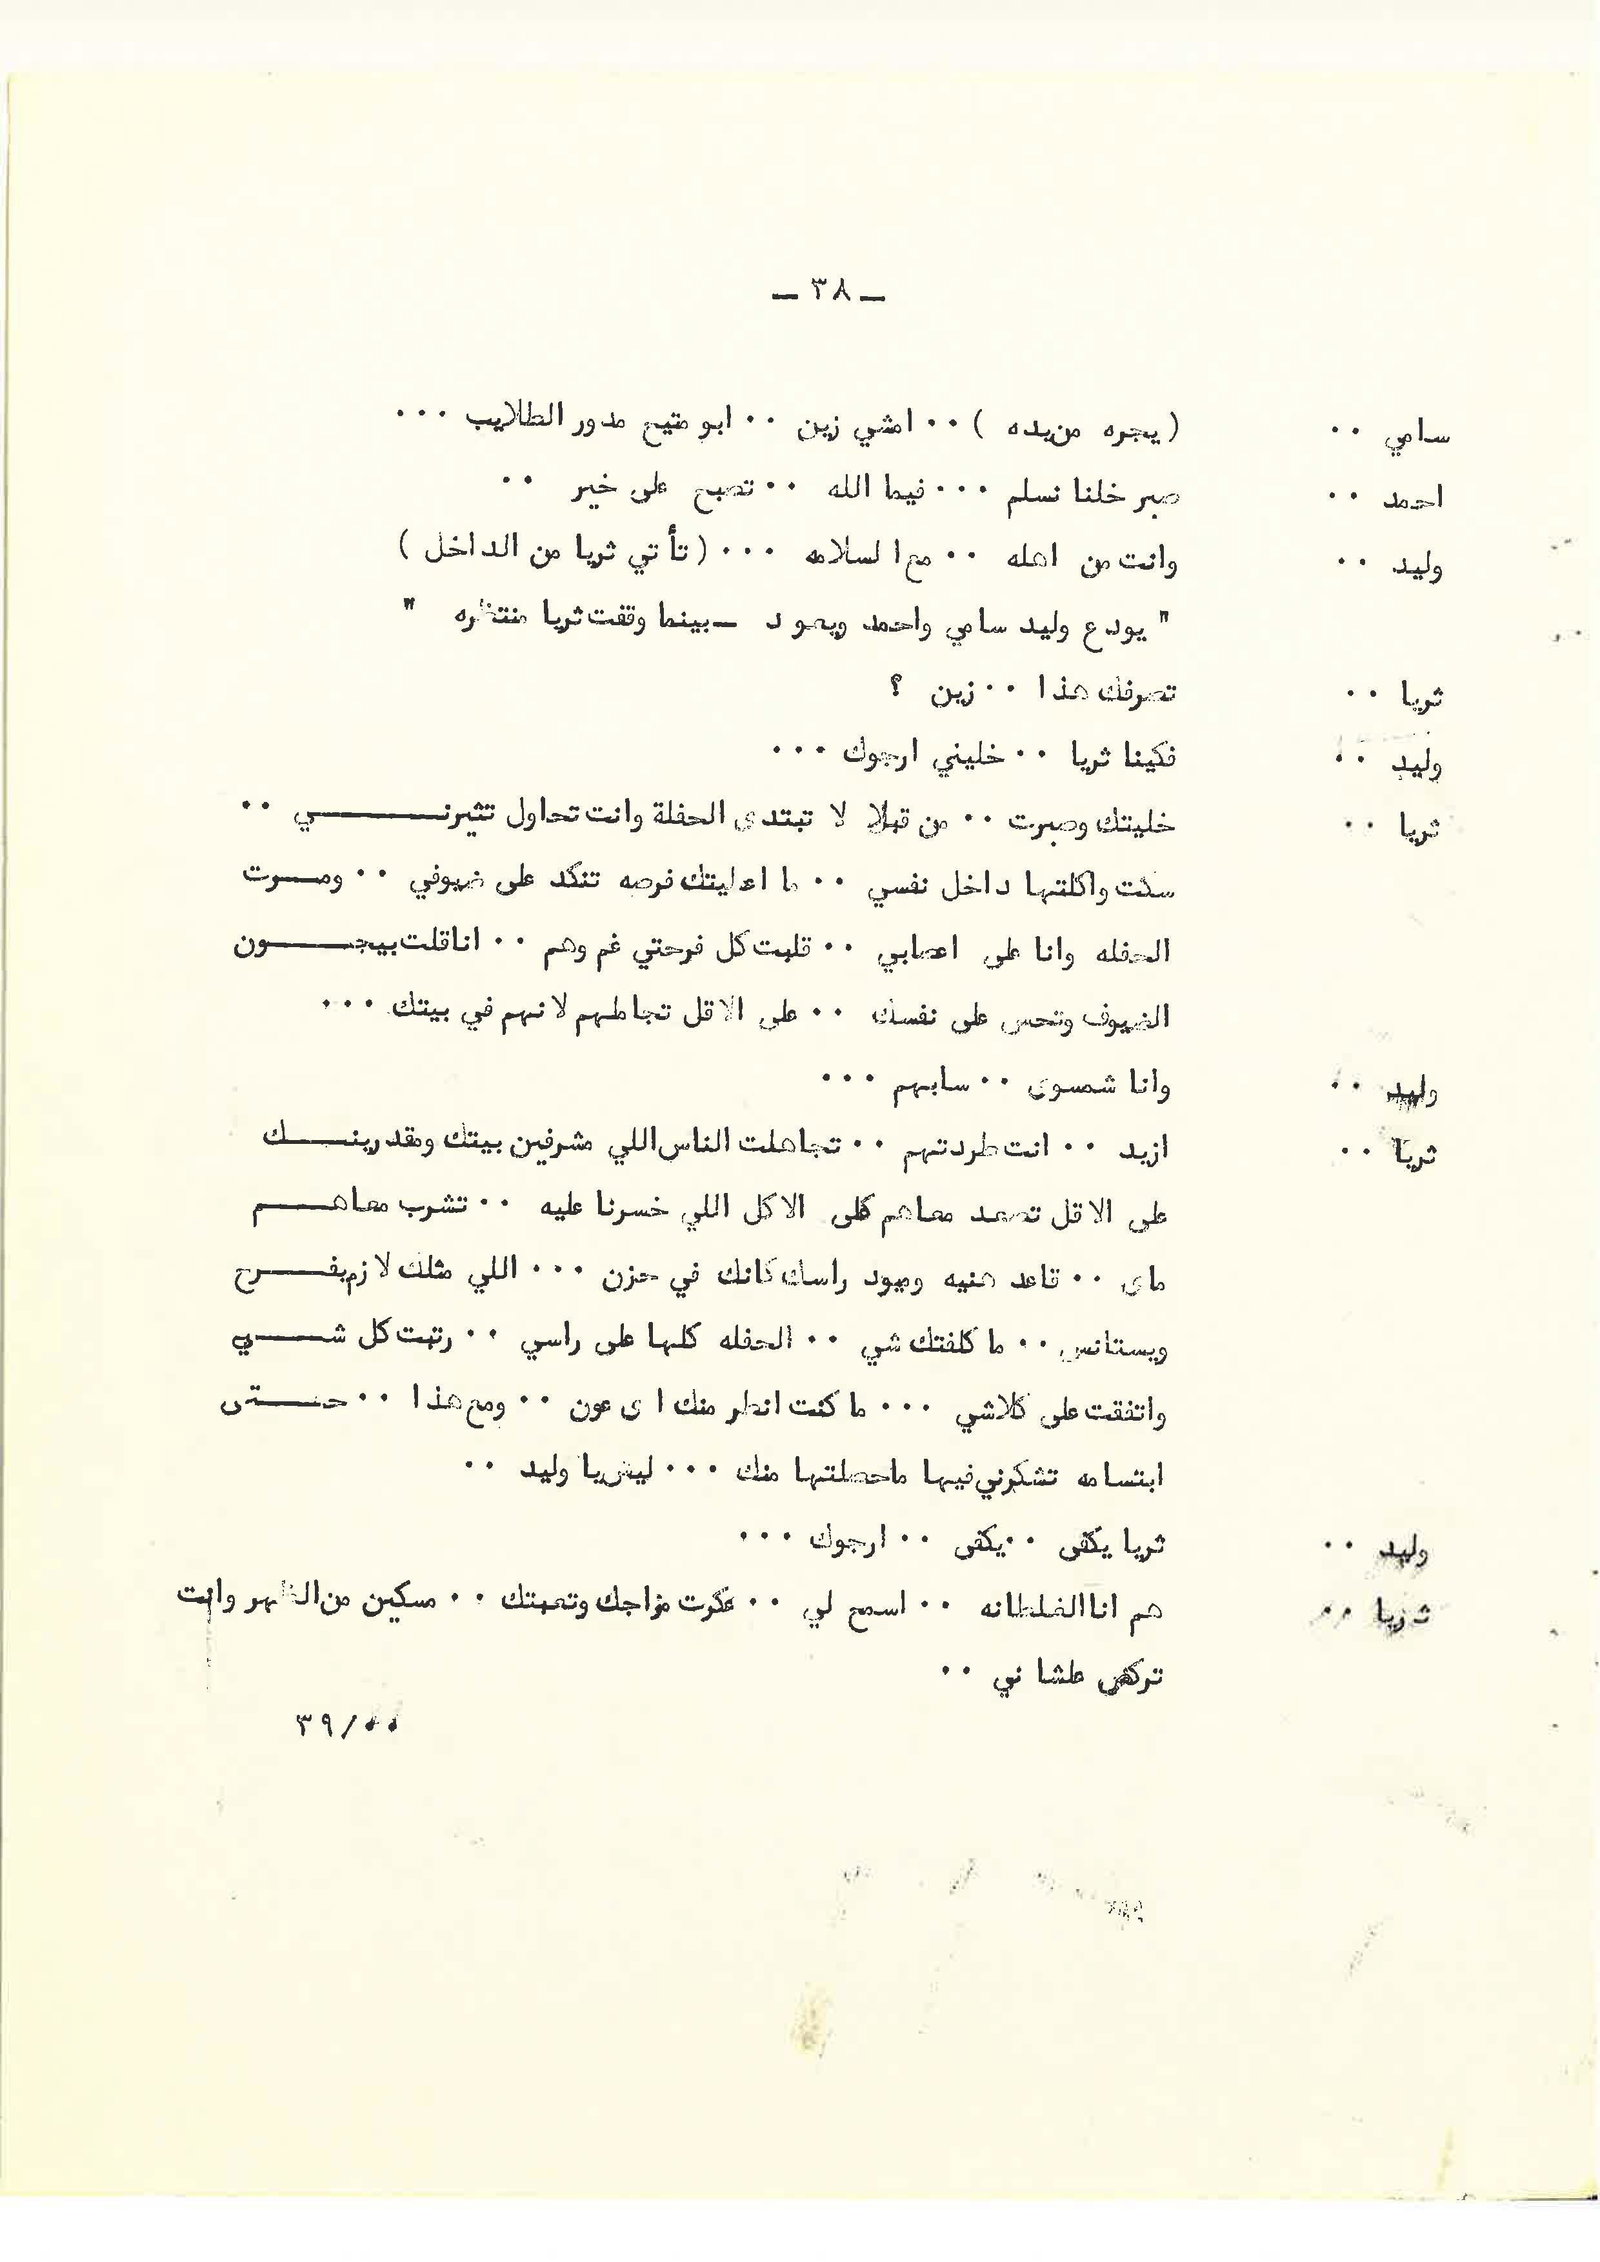 ــ ٣٨ ــ
سامي ٠٠ ( يجره من يده ) ٠٠ امشي زين ٠٠ ابو متيح مدور الطلايب ٠٠٠
احمد ٠٠ صبر خلنا نسلم ٠٠٠ فيما الله ٠٠ تصبح على خير ٠٠
وليد ٠٠ وانت من اهله ٠٠ مع السلامه ٠٠٠ ( تأتي ثريا من الداخل )
" يودع وليد سامي واحمد ويعود ــ بينما وقفت ثريا منتظره "
ثريا ٠٠ تصرفك هذا ٠٠ زين ؟
وليد ٠٠ فكينا ثريا ٠٠ خليني ارجوك ٠٠٠
ثريا ٠٠ خليتك وصبرت ٠٠ من قبلا لا تبتدى الحفلة وانت تحاول تثيرنـــــــي ٠٠
سكت واكلتها داخل نفسي ٠٠ ما اعطيتك فرصه تنكد على ضيوفي ٠٠ ومـــرت
الحفله وانا على اعصابي ٠٠ قلبت كل فرحتي غم وهم ٠٠ انا قلت بيجـــــون
الضيوف وتحس على نفسك ٠٠ على الاقل تجاملهم لانهم في بيتك ٠٠٠
وليد ٠٠ وانا شمسوى ٠٠ سابهم ٠٠٠
ثريا ٠٠ ازيد ٠٠ انت طردتهم ٠٠ تجاهلت الناس اللي مشرفين بيتك ومقدرينـــــك
على الاقل تصعد معاهم على الاكل اللي خسرنا عليه ٠٠ تشرب معاهـــــم
ماى ٠٠ قاعد هنيه وميود راسك كانك في حزن ٠٠٠ اللي مثلك لازم يفـــــرح
ويستانس ٠٠ ما كلفتك شي ٠٠ الحفله كلها على راسي ٠٠ رتبت كل شـــــي
واتفقت على كلاشي ٠٠٠ ما كنت انطر منك اى عون ٠٠ ومع هذا ٠٠ حـــــتى
ابتسامه تشكرني فيها ماحصلتها منك ٠٠٠ ليش يا وليد ٠٠
وليد ٠٠ ثريا يكفى ٠٠ يكفى ٠٠ ارجوك ٠٠٠
ثريا ٠٠ هم انا الغلطانه ٠٠ اسمح لي ٠٠ عكرت مزاجك وتعبتك ٠٠ مسكين من الظهر وانت
تركض علشاني ٠٠
٣٩/٠٠